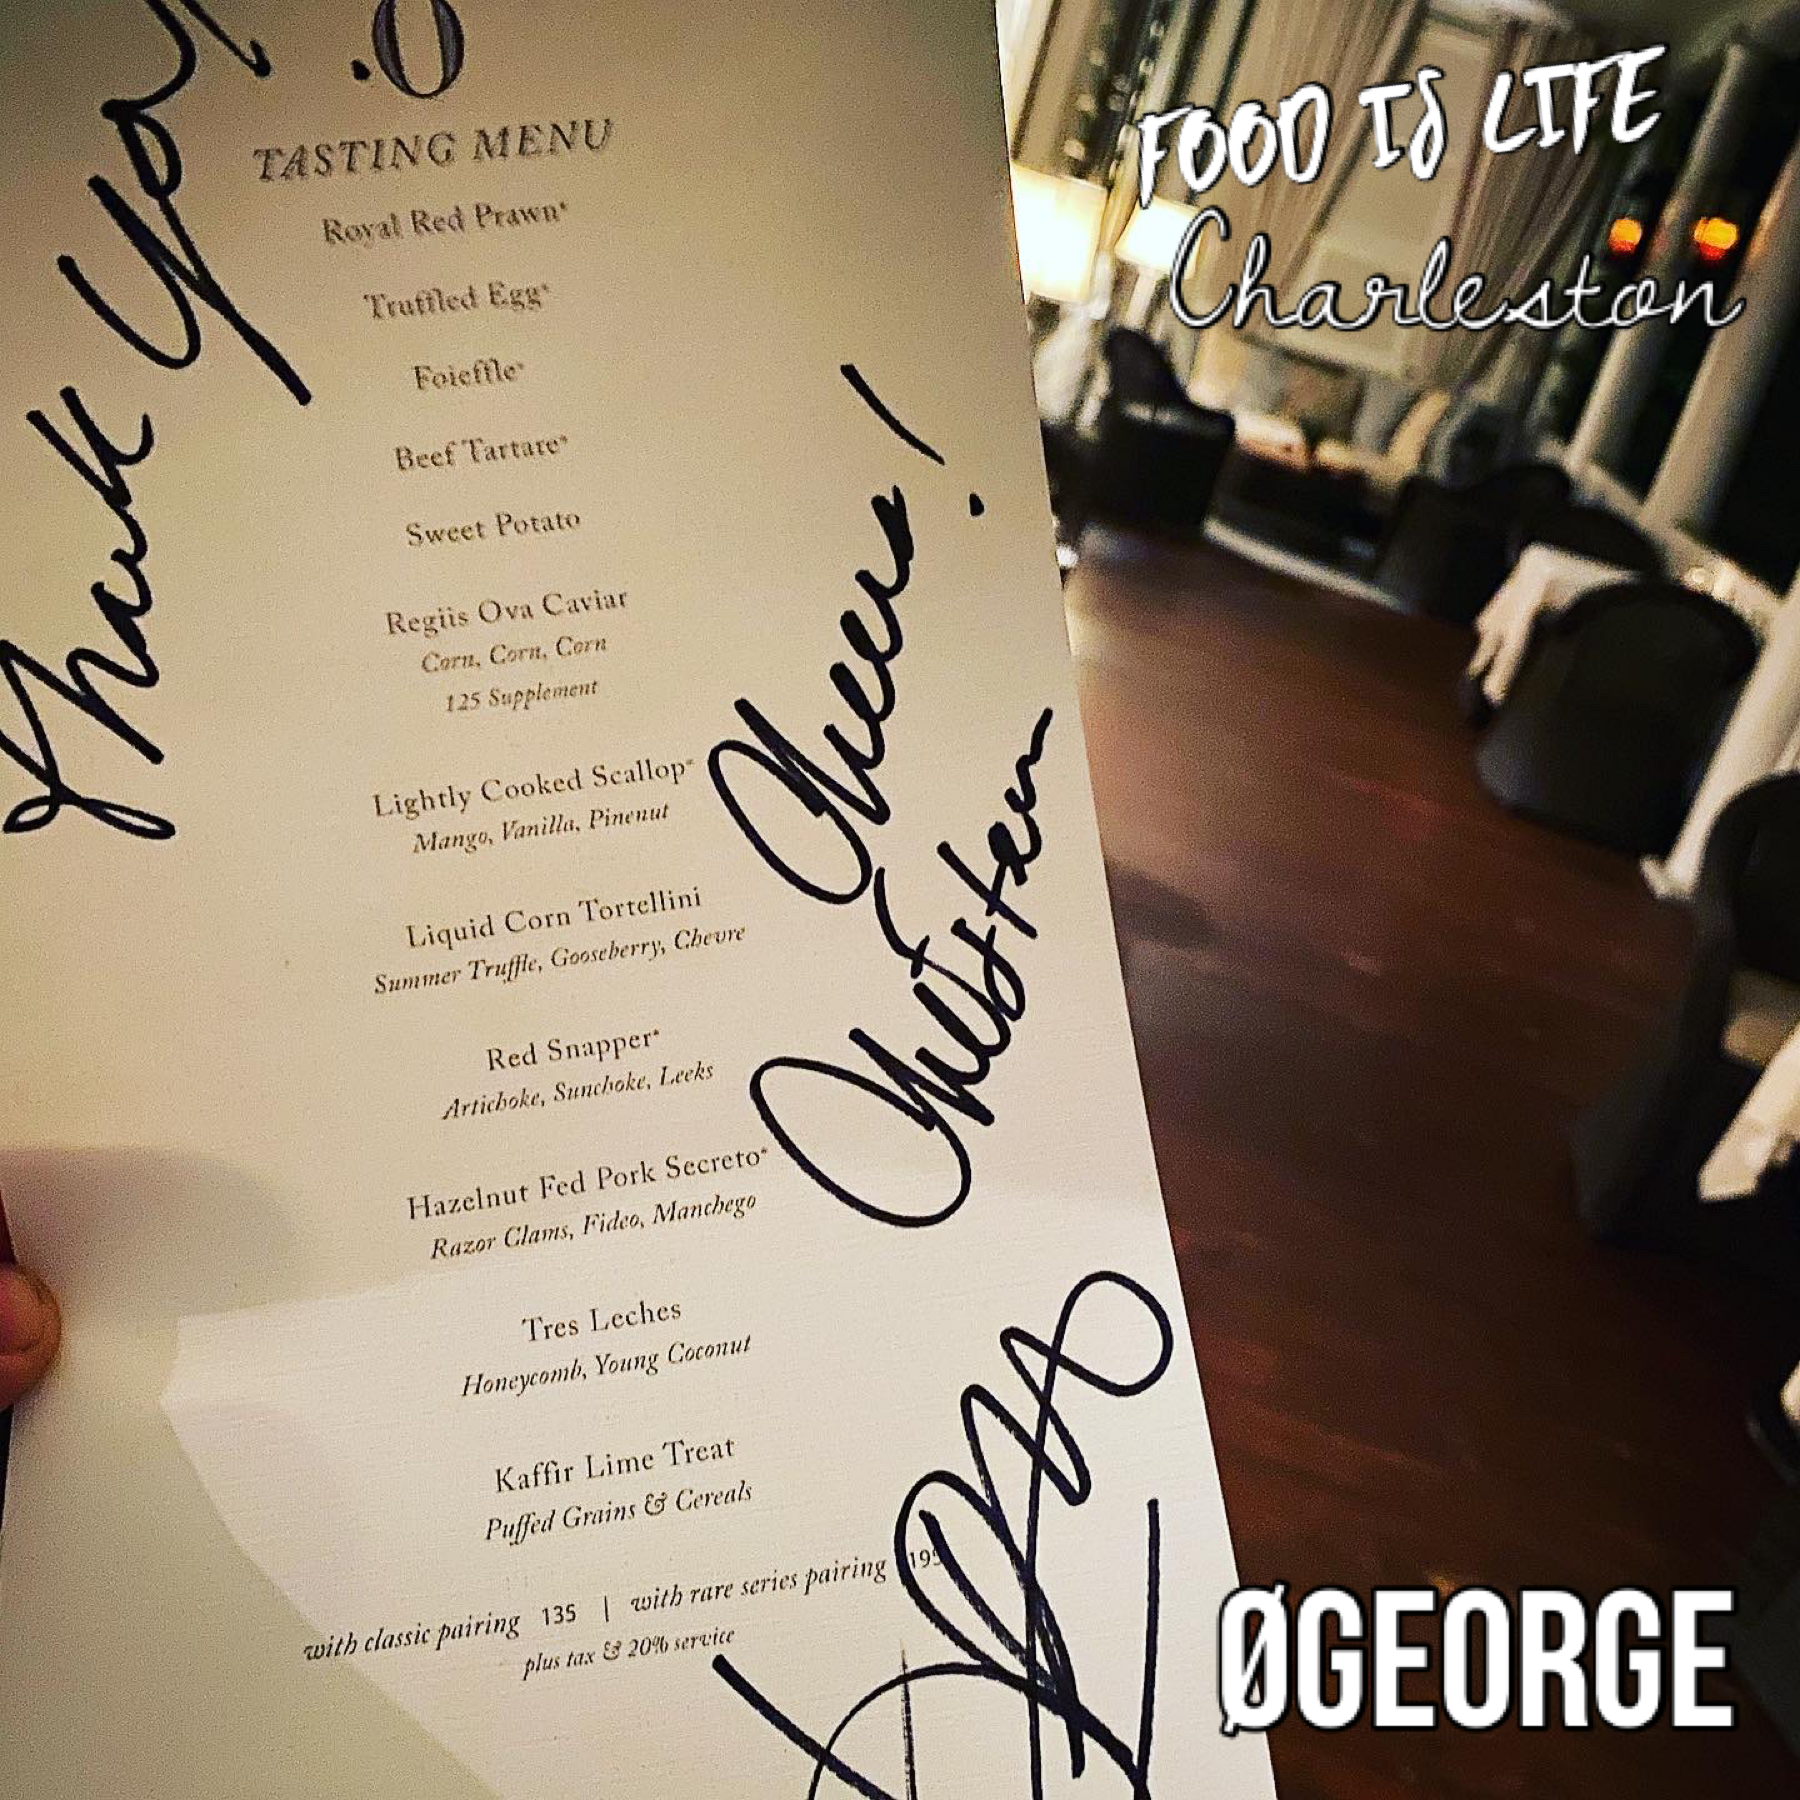 .O
TASTING MENU
Royal Red Prawn*
Truffled Egg*
Foieffle*
Beef Tartare*
Sweet Potato
Regiis Ova Caviar
Corn, Corn, Corn
125 Supplement
Lightly Cooked Scallop*
Mango, Vanilla, Pinenut
Liquid Corn Tortellini
Summer Truffle, Gooseberry, Chevre
Red Snapper*
Artichoke, Sunchoke, Leeks
Hazelnut Fed Pork Secreto*
Razor Clams, Fideo, Manchego
Tres Leches
Honeycomb, Young Coconut
Kaffir Lime Treat
Puffed Grains & Cereals
with classic pairing 135 | with rare series pairing 195
plus tax & 20% service
Thank you
Cheers!
Christian
FOOD IS LIFE
Charleston
ØGEORGE